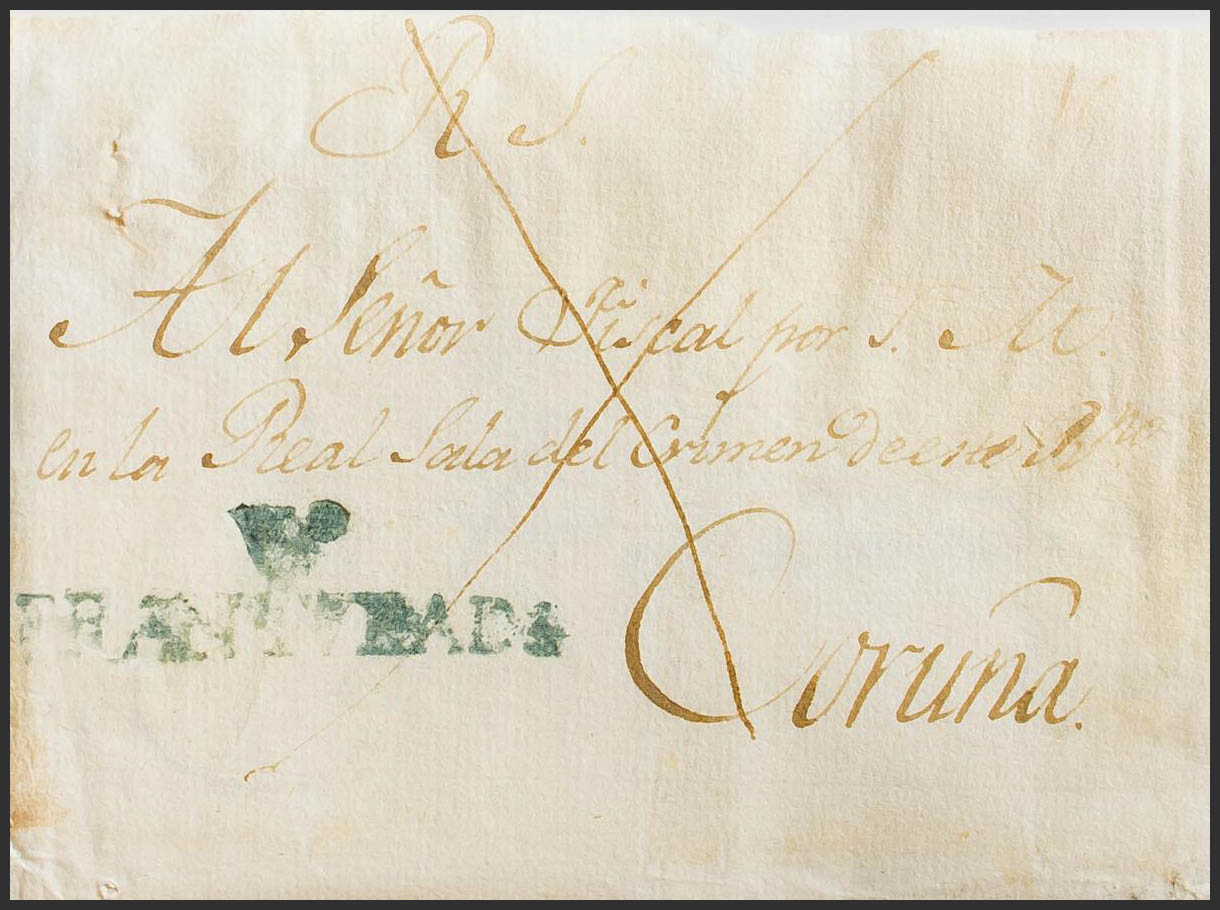 R S.
Al Señor Fiscal por S. M.
en la Real Sala del Crimen de este R.no
Vo
Coruña.